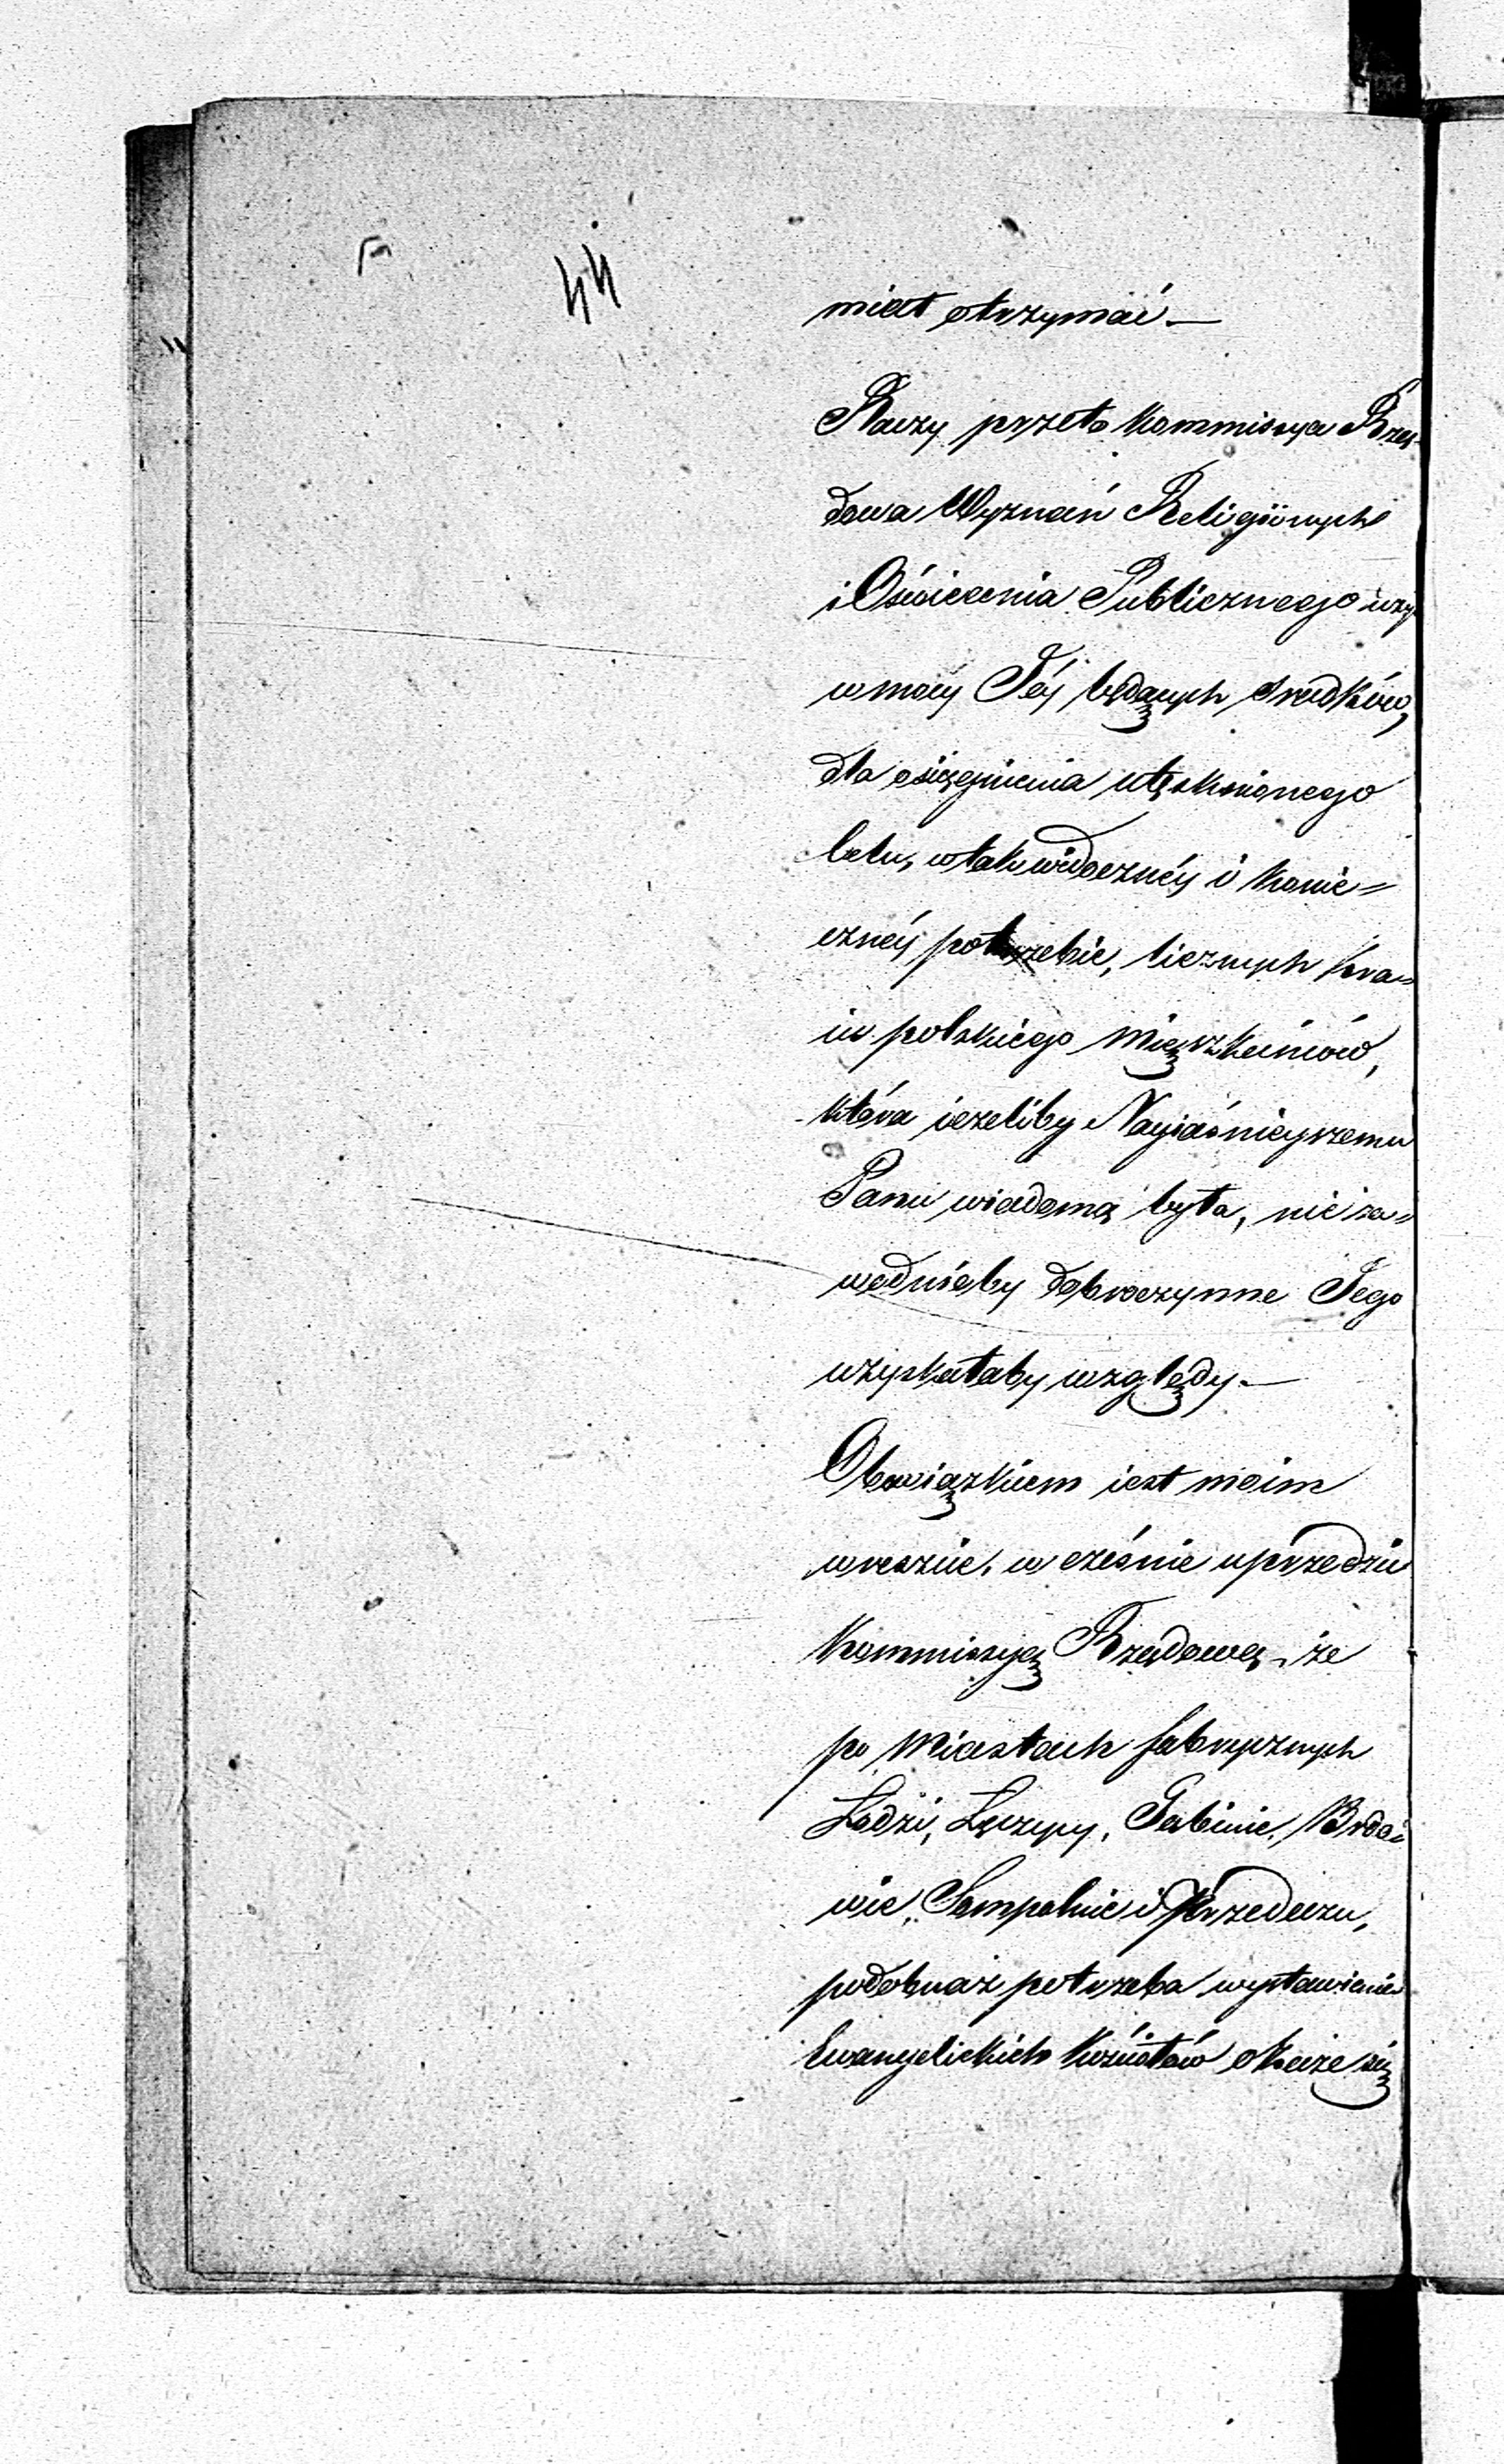 44
miał otrzymać —
Raczy przeto Kommissya Rzą-
dowa Wyznań Religiinych
i Oświecenia Publicznego uży
w mocy Jéy będących srodków,
dla osiągnienia utęsknionego
celu, w tak widocznéy i konie=
cznéy potrzebie, licznych kra=
iu polskiego Mięszkańców,
która ieżeliby Nayiaśnieyszemu
Panu wiadomą była, nieza=
wodnieby dobroczynne Jego
uzyskałaby względy. —
Obowiązkiem iest moim
wreszcie, w cześnie uprzedzić
Kommissyą Rządową, że
po Miastach fabrycznych
Łodzi, Łęczycy, Gąbinie, Brdo=
wie, Sompolnie i Przedeczu,
podobnaż potrzeba wystawienia
Ewangelickich Kościołów okaże się